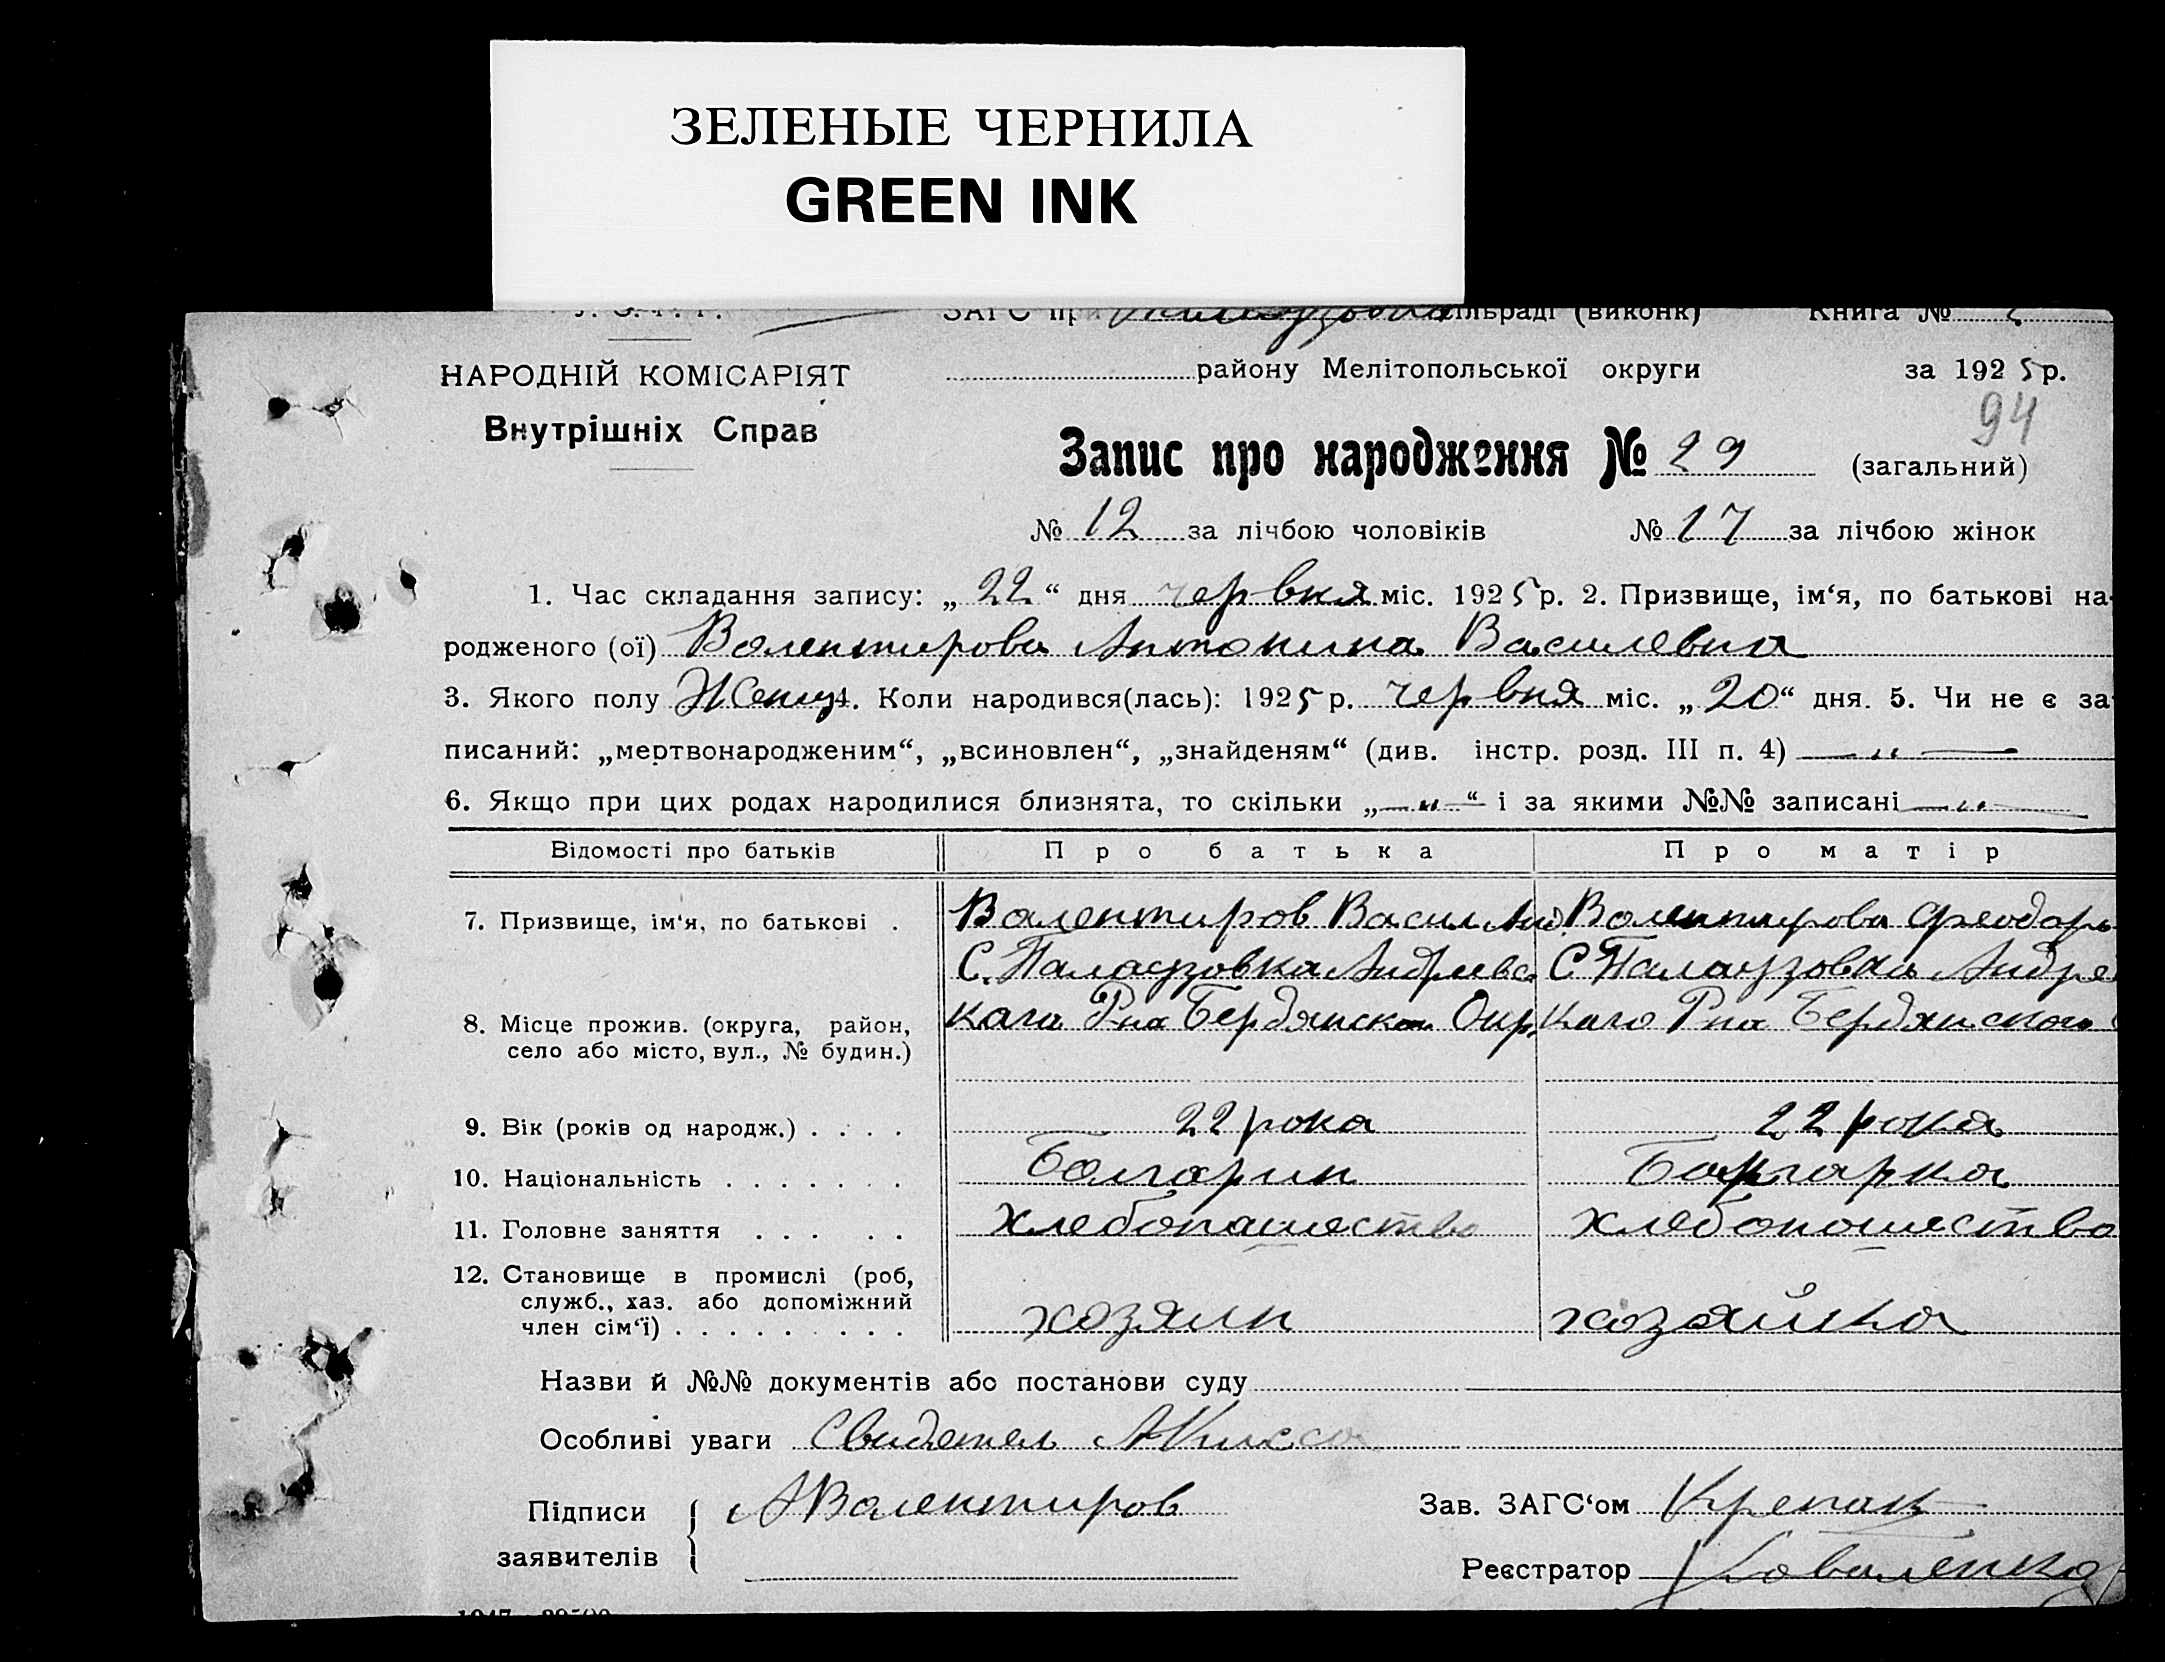 ЗЕЛЕНЫЕ ЧЕРНИЛА
GREEN INK
ЗАГС при сільраді (виконк) Книга №
НАРОДНІЙ КОМІСАРІЯТ
района Мелітопольської округи за 1925 р.
Внутрішніх Справ
94
Запис про народження № 29 (загальний)
№ 12 за лічбою чоловіків № 17 за лічбою жінок
1. Час складання запису: „22“ дня червня міс. 1925 р. 2. Призвище, ім‘я, по батькові на-
родженого (ої) Валентирова Антонина Василевна
3. Якого полу Женщ 4. Коли народився(лась): 1925 р. червня міс. „20“ дня. 5. Чи не є за
писаний: „мертвонародженим“, „всиновлен“, „знайденям“ (див. інстр. розд. III п. 4) — „ —
6. Якщо при цих родах народилися близнята, то скільки „— „ —“ і за якими №№ записані — „ —
Відомості про батьків Про батька Про матір
7. Призвище, ім‘я, по батькові . Валентиров Васил Анд Валентирова Феодора
С. Палаузовка Андреевс С Палаузовка Андре
8. Місце прожив. (округа, район, каго Р-на Бердянскаго Окр. каго Р-на Бердянскаго
село або місто, вул., № будин.)
9. Вік (років од народж.) . . . . 22 рока 22 рока
10. Національність . . . . . . . Болгарин Болгарка
11. Головне заняття . . . . . Хлебопашество Хлебопашество
12. Становище в промислі (роб,
служб., хаз. або допоміжний
член сім‘ї) . . . . . . . . . хозяин хозяйка
Назви й №№ документів або постанови суду
Особливі уваги Свидетел А Кисса
Підписи АВалентиров Зав. ЗАГС‘ом
заявителів
Реєстратор Коваленко